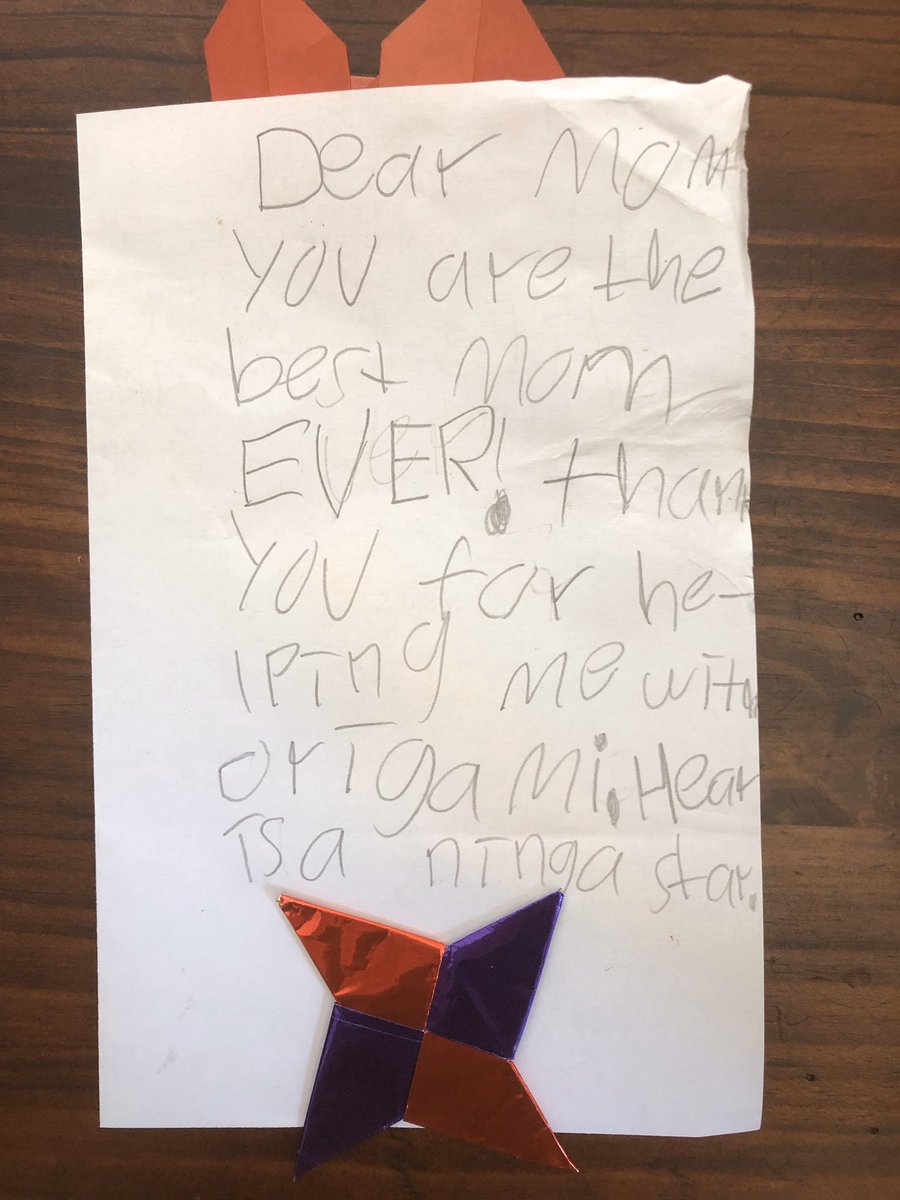 Dear Mom
You are the
best Mom
EVER! thank
You for he-
lping me with
origami. Hear
is a ninga star.